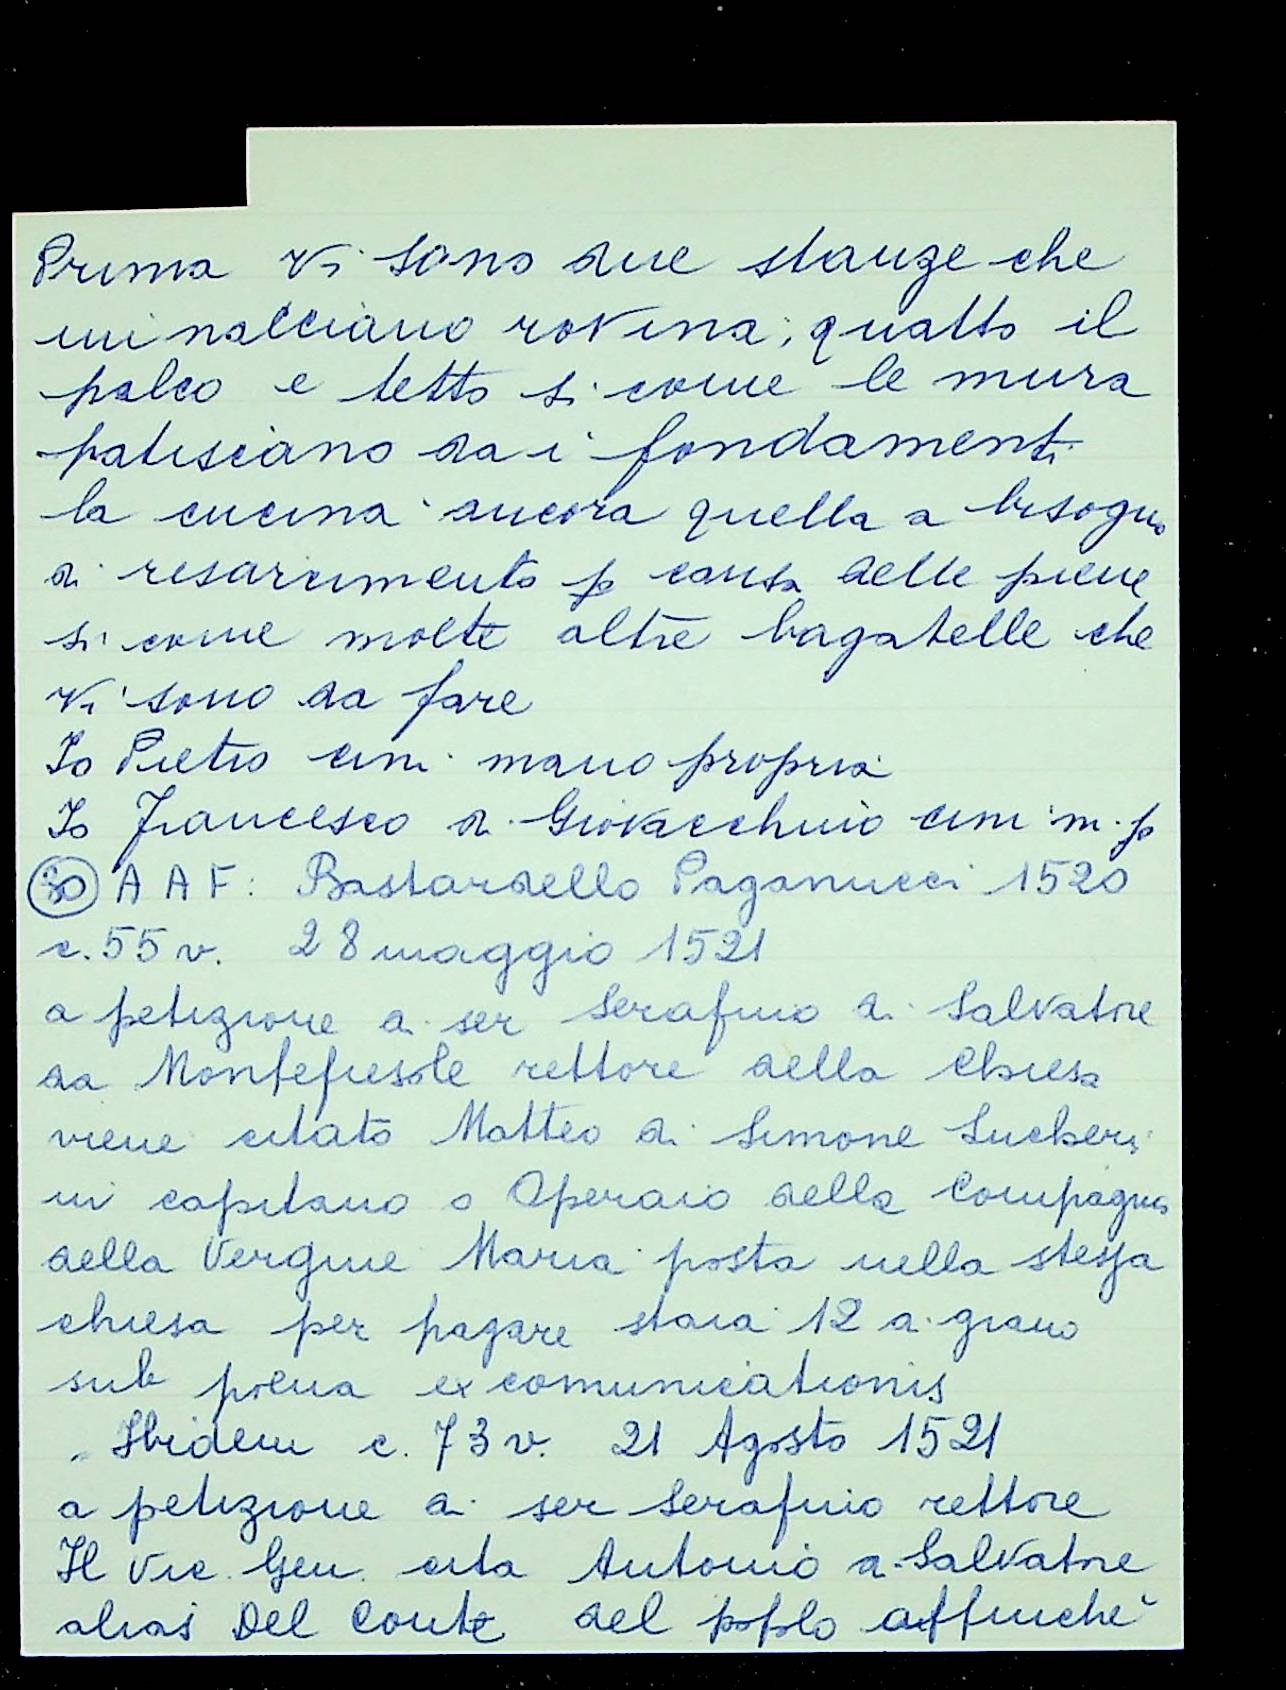 Prima vi sono due stanze che
minacciano rovina, quatto il
palco e tetto si come le mura
patisciano da i fondamenti
la cucina ancora quella a bisogno
di resarcimento p causa delle piene
si come molte altre bagatelle che
vi sono da fare
Io Pietro Cini mano propria
Io Francesco di Giovacchino Cini m. p
30 A A F: Bastardello Paganucci 1520
c. 55 v. 28 maggio 1521
a petizione di ser Serafino di Salvatore
da Montefiesole rettore della Chiesa
viene citato Matteo di Simone Sucheri
ni capitano o Operaio della Compagnia
della Vergine Maria posta nella stessa
chiesa per pagare staia 12 di grano
sub poena excomunicationis
Ibidem c. 73 v. 21 Agosto 1521
a petizione di ser Serafino rettore
Il Vic. Gen. cita Antonio di Salvatore
alias Del Conte del popolo affinché